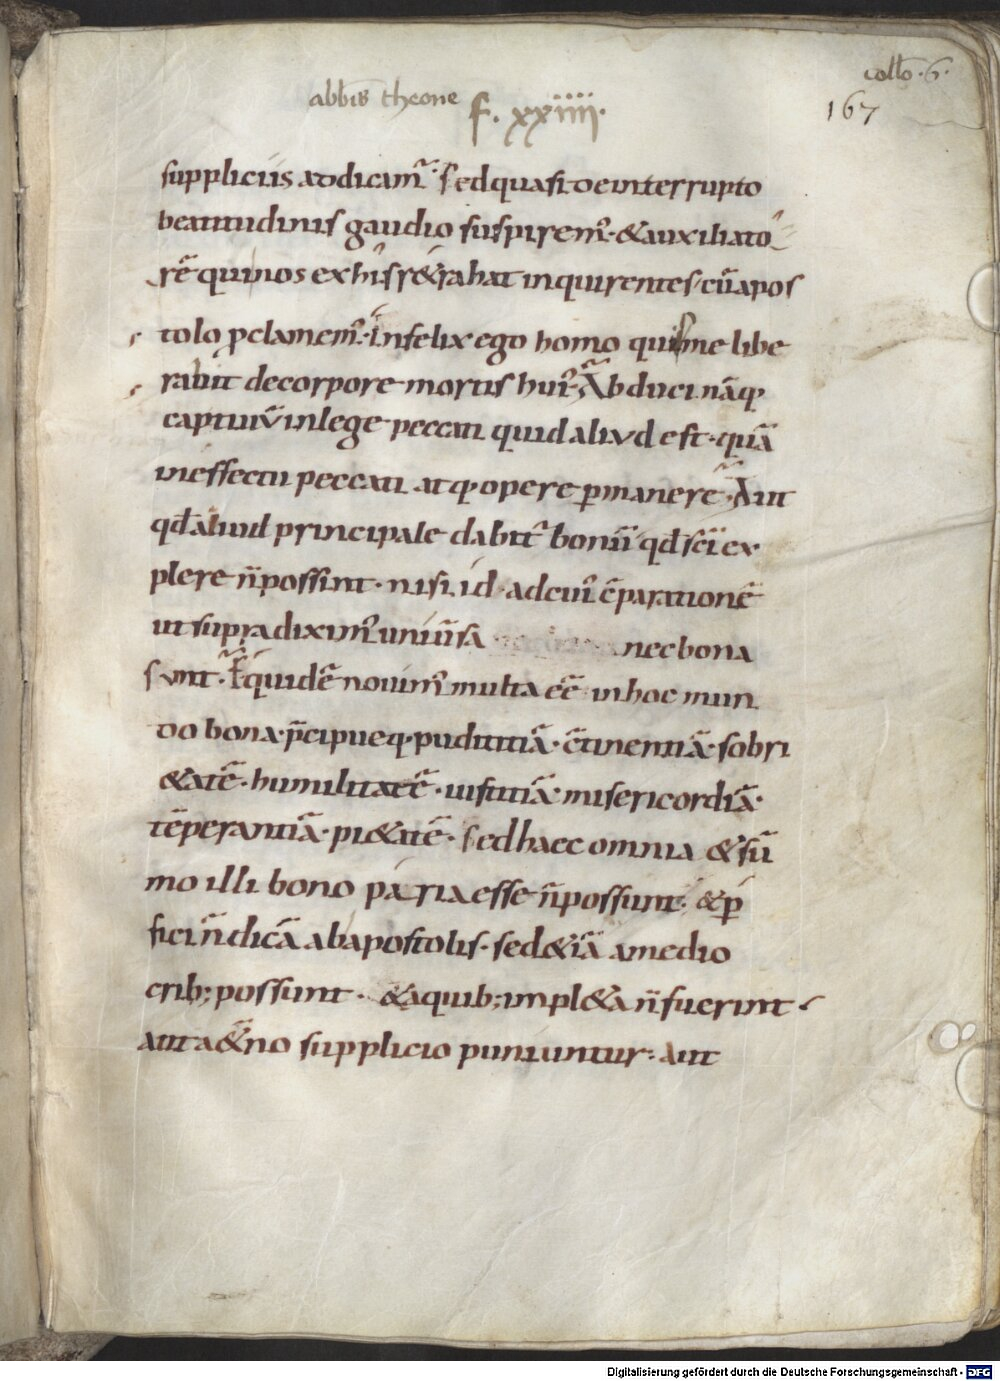 collo · 6 ·
abbis theone f. xxiiii.
167
suppliciis addicamr̃. sed quasi de interrupto
beatitudinis gaudio suspirem᾽. &auxiliato
rẽ qui nos ex his r&rahat inquirentes. cũ apos
tolo ꝓclamem᾽. infelix ego homo quis me libe
rabit de corpore mortis hui᾽. Abduci nãq;
captiuũ in lege peccati quid aliud est. quã
in effectu peccati atq; opere ꝑmanere. Aut
qd̃ aliud principale dabit᾽ bonũ qd̃ sc̃i ex
plere ñ possint. nisi id. ad cui᾽ c̃parationẽ
ut supra dixim᾽ uniũsa nec bona
sunt. Et quidẽ nouim᾽ multa eẽ in hoc mun
do bona. p̃cipueq; pudititiã. c̃tinentiã. sobri
&atẽ. humilitatẽ. iustitiã. misericordiã.
tẽperantiã. pi&atẽ. sed haec omnia & sũ
mo illi bono paria esse ñ possunt. & ꝑ
fici ñ dicã ab apostolis. sed &iã a medio
crib; possunt. & a quib; impl&a ñ fuerint
aut a&̃no supplicio puniuntur. aut
Digitalisierung gefördert durch die Deutsche Forschungsgemeinschaft - DFG